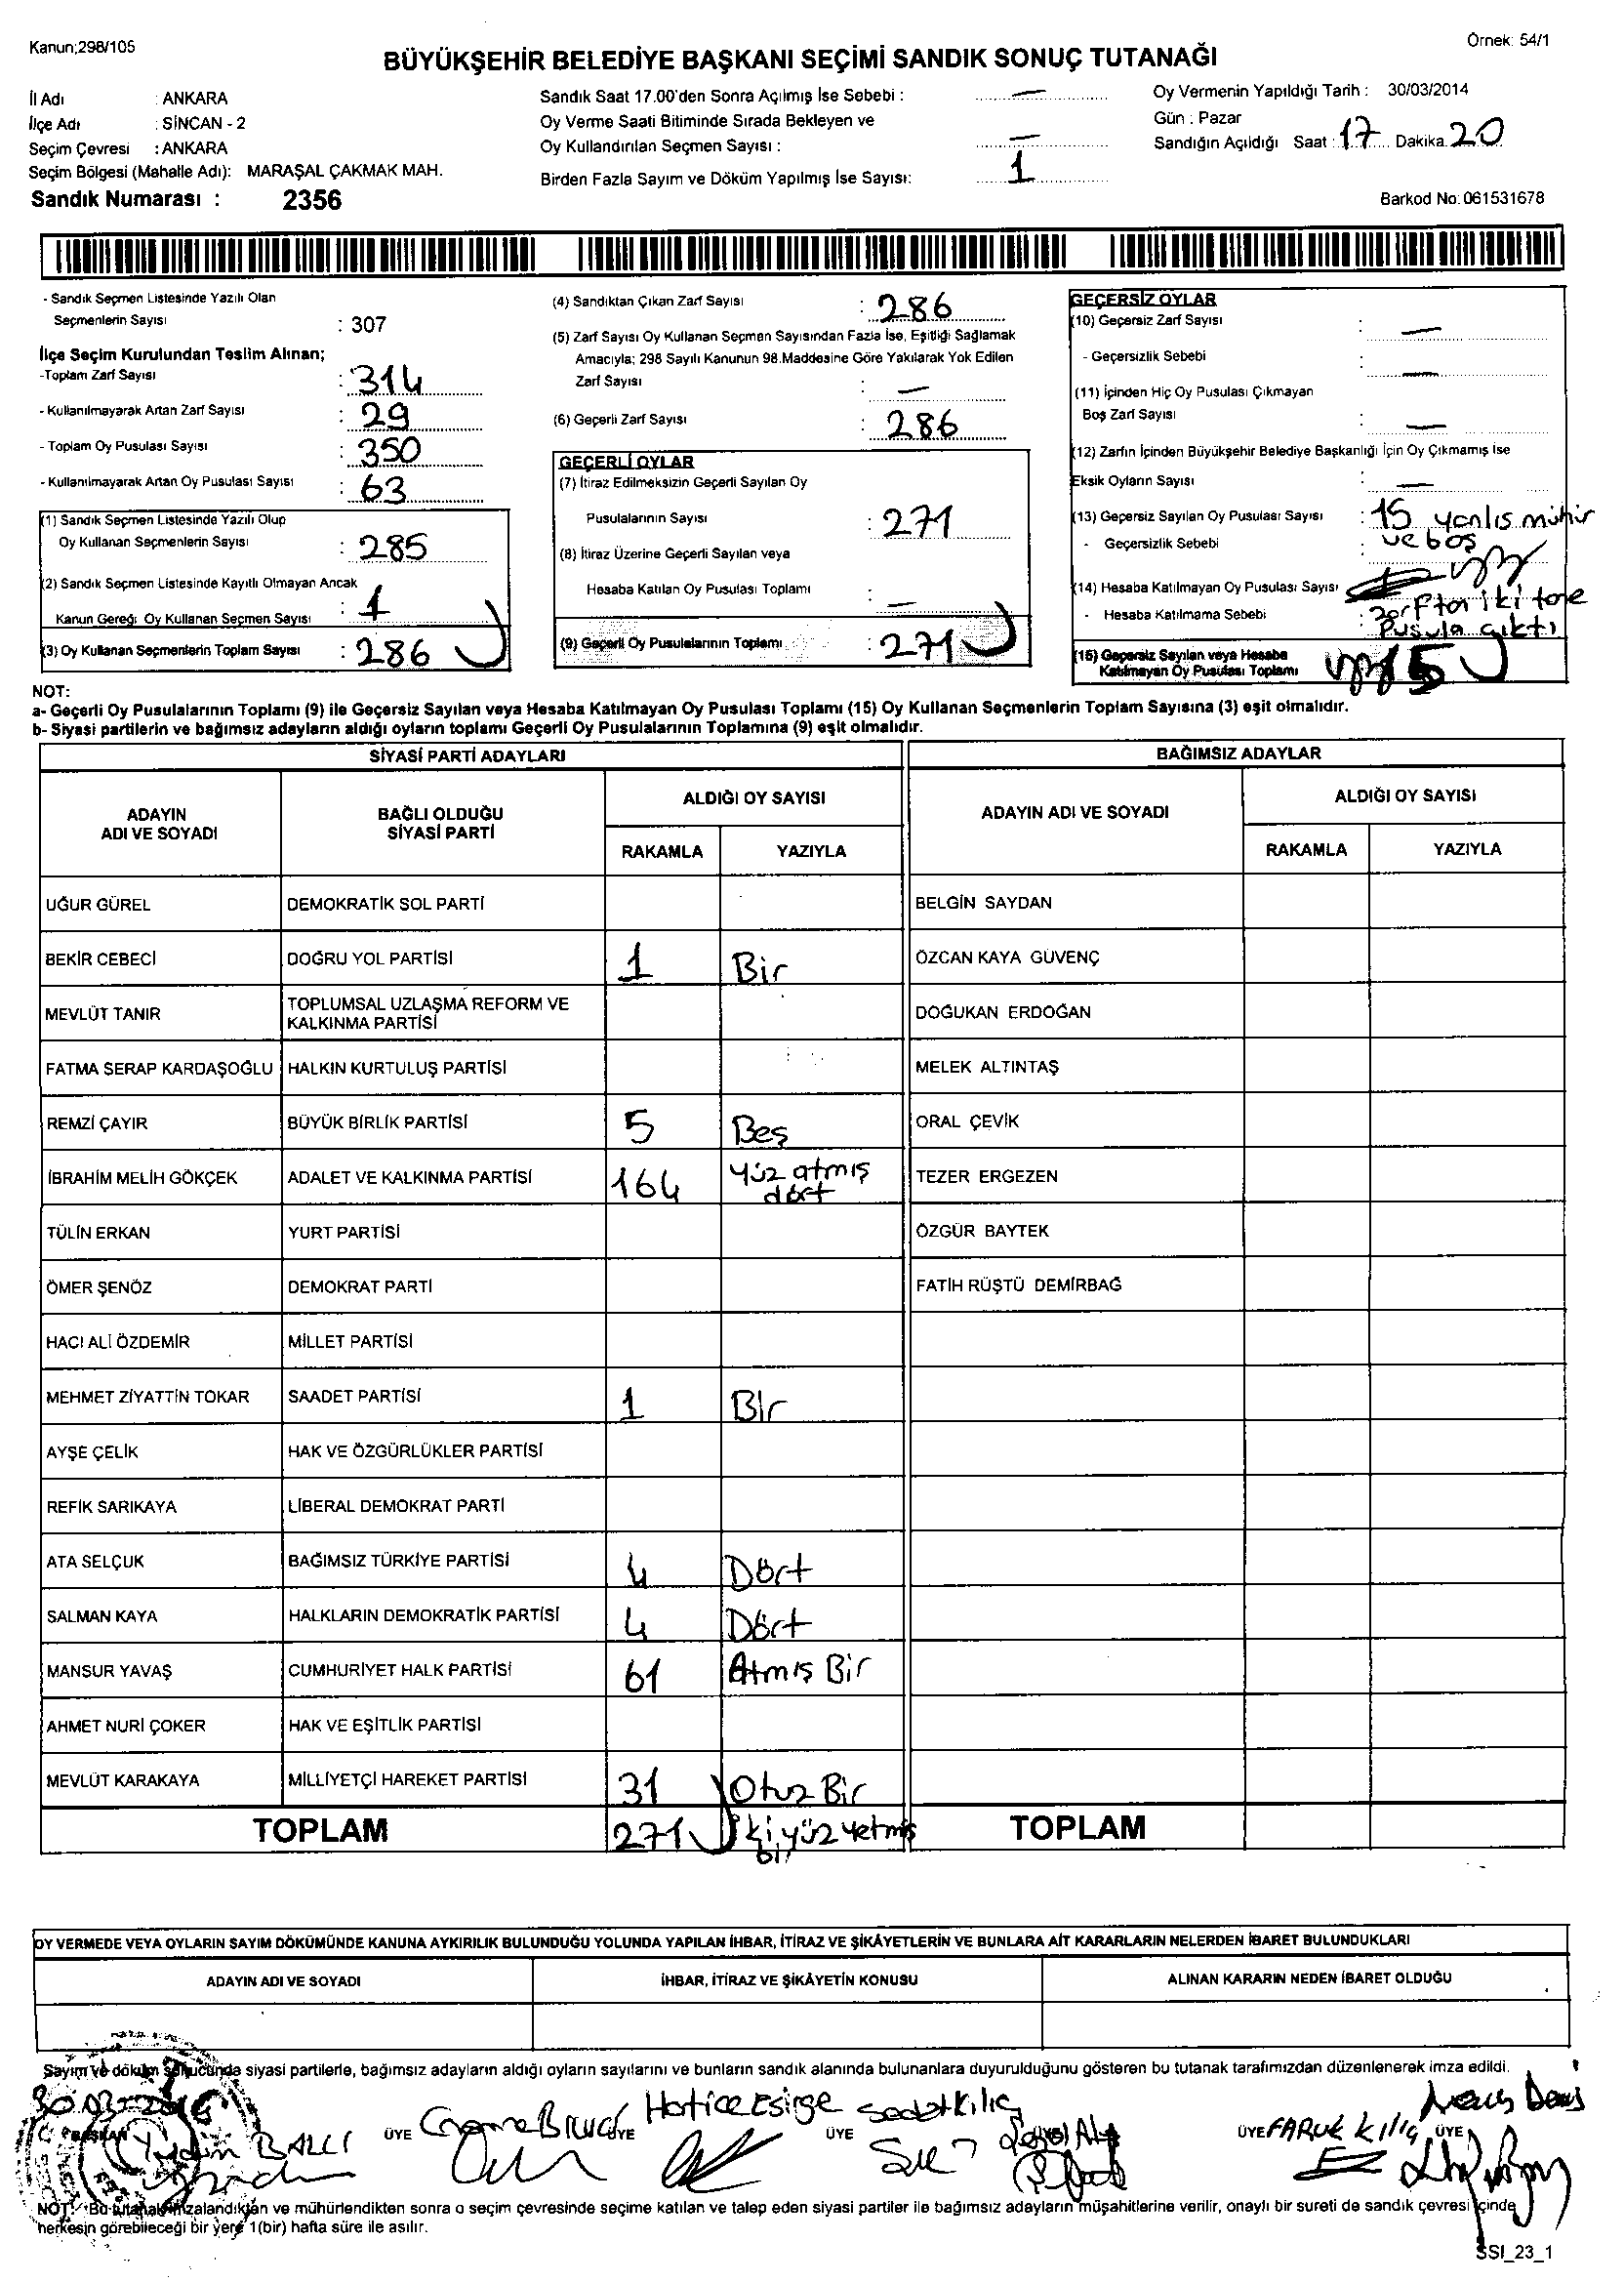 Kanun;298/105
Örnek: 54/1
BÜYÜKŞEHİR BELEDİYE BAŞKANI SEÇİMİ SANDIK SONUÇ TUTANAĞI
İl Adı : ANKARA
İlçe Adı : SİNCAN - 2
Seçim Çevresi : ANKARA
Seçim Bölgesi (Mahalle Adı): MARAŞAL ÇAKMAK MAH.
Sandık Numarası : 2356
Sandık Saat 17.00'den Sonra Açılmış İse Sebebi : —
Oy Verme Saati Bitiminde Sırada Bekleyen ve
Oy Kullandırılan Seçmen Sayısı : —
Birden Fazla Sayım ve Döküm Yapılmış İse Sayısı: 1
Oy Vermenin Yapıldığı Tarih : 30/03/2014
Gün : Pazar
Sandığın Açıldığı Saat : 17 Dakika 20
Barkod No: 061531678
- Sandık Seçmen Listesinde Yazılı Olan
Seçmenlerin Sayısı : 307
İlçe Seçim Kurulundan Teslim Alınan;
-Toplam Zarf Sayısı : 314
- Kullanılmayarak Artan Zarf Sayısı : 29
- Toplam Oy Pusulası Sayısı : 350
- Kullanılmayarak Artan Oy Pusulası Sayısı : 63
(1) Sandık Seçmen Listesinde Yazılı Olup
Oy Kullanan Seçmenlerin Sayısı : 285
(2) Sandık Seçmen Listesinde Kayıtlı Olmayan Ancak
Kanun Gereği Oy Kullanan Seçmen Sayısı : 1
(3) Oy Kullanan Seçmenlerin Toplam Sayısı : 286
(4) Sandıktan Çıkan Zarf Sayısı : 286
(5) Zarf Sayısı Oy Kullanan Seçmen Sayısından Fazla İse, Eşitliği Sağlamak
Amacıyla; 298 Sayılı Kanunun 98.Maddesine Göre Yakılarak Yok Edilen
Zarf Sayısı : —
(6) Geçerli Zarf Sayısı : 286
GEÇERLİ OYLAR
(7) İtiraz Edilmeksizin Geçerli Sayılan Oy
Pusulalarının Sayısı : 271
(8) İtiraz Üzerine Geçerli Sayılan veya
Hesaba Katılan Oy Pusulası Toplamı : —
(9) Geçerli Oy Pusulalarının Toplamı : 271
GEÇERSİZ OYLAR
(10) Geçersiz Zarf Sayısı : —
- Geçersizlik Sebebi : —
(11) İçinden Hiç Oy Pusulası Çıkmayan
Boş Zarf Sayısı : —
(12) Zarfın İçinden Büyükşehir Belediye Başkanlığı İçin Oy Çıkmamış İse
Eksik Oyların Sayısı : —
(13) Geçersiz Sayılan Oy Pusulası Sayısı : 15 yanlıs mühür
- Geçersizlik Sebebi : ve boş
(14) Hesaba Katılmayan Oy Pusulası Sayısı
- Hesaba Katılmama Sebebi : zarftan iki tane
pusula çıktı
(15) Geçersiz Sayılan veya Hesaba
Katılmayan Oy Pusulası Toplamı 15
NOT:
a- Geçerli Oy Pusulalarının Toplamı (9) ile Geçersiz Sayılan veya Hesaba Katılmayan Oy Pusulası Toplamı (15) Oy Kullanan Seçmenlerin Toplam Sayısına (3) eşit olmalıdır.
b- Siyasi partilerin ve bağımsız adayların aldığı oyların toplamı Geçerli Oy Pusulalarının Toplamına (9) eşit olmalıdır.
SİYASİ PARTİ ADAYLARI
BAĞIMSIZ ADAYLAR
ADAYIN
ADI VE SOYADI
BAĞLI OLDUĞU
SİYASİ PARTİ
ALDIĞI OY SAYISI
RAKAMLA YAZIYLA
ADAYIN ADI VE SOYADI
ALDIĞI OY SAYISI
RAKAMLA YAZIYLA
UĞUR GÜREL DEMOKRATİK SOL PARTİ BELGİN SAYDAN
BEKİR CEBECİ DOĞRU YOL PARTİSİ 1 Bir ÖZCAN KAYA GÜVENÇ
MEVLÜT TANIR TOPLUMSAL UZLAŞMA REFORM VE
KALKINMA PARTİSİ DOĞUKAN ERDOĞAN
FATMA SERAP KARDAŞOĞLU HALKIN KURTULUŞ PARTİSİ MELEK ALTINTAŞ
REMZİ ÇAYIR BÜYÜK BİRLİK PARTİSİ 5 Beş ORAL ÇEVİK
İBRAHİM MELİH GÖKÇEK ADALET VE KALKINMA PARTİSİ 164 yüz atmış
dört TEZER ERGEZEN
TÜLİN ERKAN YURT PARTİSİ ÖZGÜR BAYTEK
ÖMER ŞENÖZ DEMOKRAT PARTİ FATİH RÜŞTÜ DEMİRBAĞ
HACI ALİ ÖZDEMİR MİLLET PARTİSİ
MEHMET ZİYATTİN TOKAR SAADET PARTİSİ 1 BIr
AYŞE ÇELİK HAK VE ÖZGÜRLÜKLER PARTİSİ
REFİK SARIKAYA LİBERAL DEMOKRAT PARTİ
ATA SELÇUK BAĞIMSIZ TÜRKİYE PARTİSİ 4 Dört
SALMAN KAYA HALKLARIN DEMOKRATİK PARTİSİ 4 Dört
MANSUR YAVAŞ CUMHURİYET HALK PARTİSİ 61 Atmış Bir
AHMET NURİ ÇOKER HAK VE EŞİTLİK PARTİSİ
MEVLÜT KARAKAYA MİLLİYETÇİ HAREKET PARTİSİ 31 Otuz Bir
TOPLAM 271 iki yüz yetmiş
bir TOPLAM
OY VERMEDE VEYA OYLARIN SAYIM DÖKÜMÜNDE KANUNA AYKIRILIK BULUNDUĞU YOLUNDA YAPILAN İHBAR, İTİRAZ VE ŞİKÂYETLERİN VE BUNLARA AİT KARARLARIN NELERDEN İBARET BULUNDUKLARI
ADAYIN ADI VE SOYADI İHBAR, İTİRAZ VE ŞİKÂYETİN KONUSU ALINAN KARARIN NEDEN İBARET OLDUĞU
Sayım ve döküm sonucunda siyasi partilerle, bağımsız adayların aldığı oyların sayılarını ve bunların sandık alanında bulunanlara duyurulduğunu gösteren bu tutanak tarafımızdan düzenlenerek imza edildi.
BAŞKAN BALCI ÜYE ÜYE Hatice Esirge ÜYE Sedat Kılıç ÜYE FARUK KILIÇ ÜYE
NOT: Bu tutanak imzalandıktan ve mühürlendikten sonra o seçim çevresinde seçime katılan ve talep eden siyasi partiler ile bağımsız adayların müşahitlerine verilir, onaylı bir sureti de sandık çevresi içinde
herkesin görebileceği bir yere 1(bir) hafta süre ile asılır.
SSI_23_1